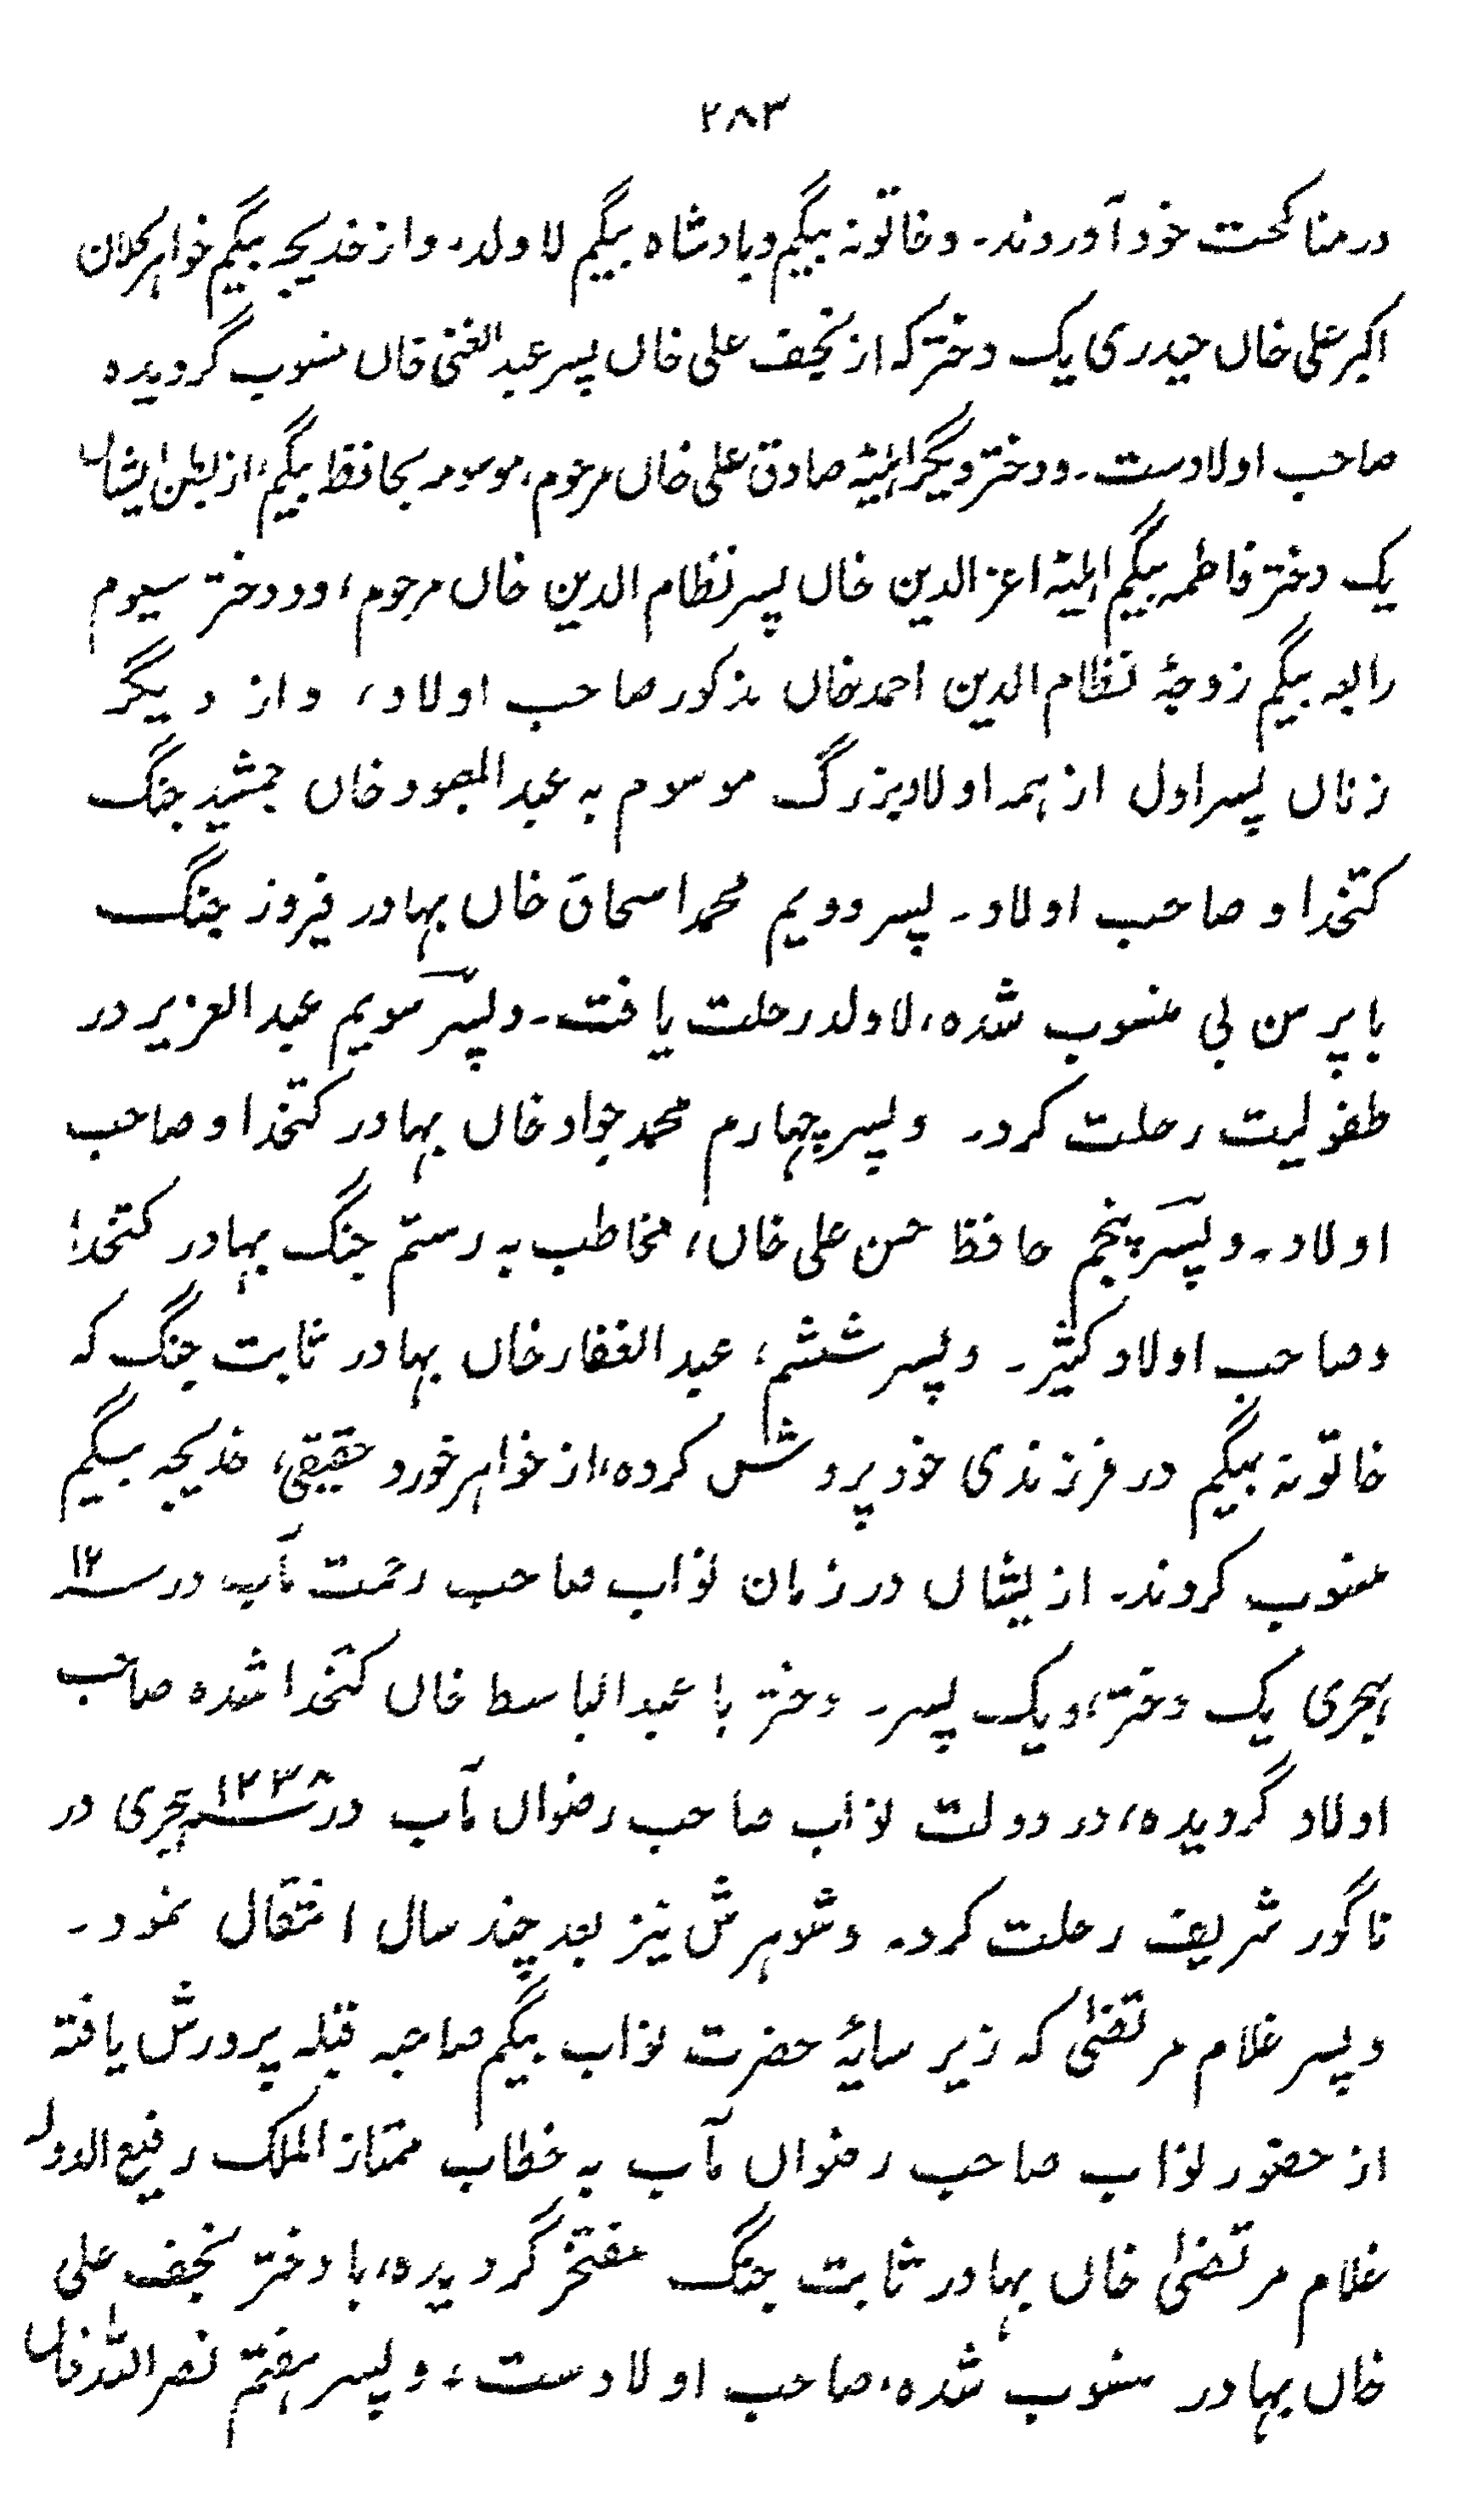 ۲۸۳
در مناکحت خود آوردند۔ و خاتونہ بیگم و بادشاہ بیگم لاولد۔ و از خدیجہ بیگم خواہر کلان
اکبر علی خاں حیدری یک دختر کہ از نجف علی خاں پسر عبد الغنی خاں منسوب گردیدہ
صاحب اولادست۔ و دختر دیگر اہلیۂ صادق علی خاں مرحوم، موسومہ بحافظ بیگم، از بطن ایشاں
یک دختر فاطمہ بیگم اہلیۂ اعز الدین خاں پسر نظام الدین خاں مرحوم، و دختر سیوم
رابعہ بیگم زوجۂ نظام الدین احمد خاں مذکور صاحب اولاد، و از دیگر
زناں پسر اول از ہمہ اولاد بزرگ موسوم بہ عبد المعبود خاں جمشید جنگ
کتخدا و صاحب اولاد۔ پسر دویم محمد اسحاق خاں بہادر فیروز جنگ
با پرسن بی منسوب شدہ، لاولد رحلت یافت۔ و پسر سویم عبد العزیز در
طفولیت رحلت کرد۔ و پسر چہارم محمد جواد خاں بہادر کتخدا و صاحب
اولاد۔ و پسر پنجم حافظ حسن علی خاں، مخاطب بہ رستم جنگ بہادر کتخدا
و صاحب اولاد کثیر۔ و پسر ششم، عبد الغفار خاں بہادر ثابت جنگ کہ
خاتونہ بیگم در فرزندی خود پروش کردہ، از خواہر خورد حقیقی، خدیجہ بیگم
منسوب کردند۔ ازیشاں در زمان نواب صاحب رحمت مآب در سنہ ۱۲
ہجری یک دختر، و یک پسر۔ دختر با عبد الباسط خاں کتخدا شدہ صاحب
اولاد گردیدہ، در دولت نواب صاحب رضواں مآب در سنہ ۱۲۳۸ ہجری در
ناگور شریف رحلت کرد۔ و شوہرش نیز بعد چند سال انتقال نمود۔
و پسر غلام مرتضیٰ کہ زیر سایۂ حضرت نواب بیگم صاحبہ قبلہ پرورش یافتہ
از حضور نواب صاحب رضواں مآب بہ خطاب ممتاز الملک رفیع الدولہ
غلام مرتضیٰ خاں بہادر ثابت جنگ مفتخر گردیدہ، با دختر نجف علی
خاں بہادر منسوب شدہ، صاحب اولادست، و پسر ہفتم نصر اللہ خاں